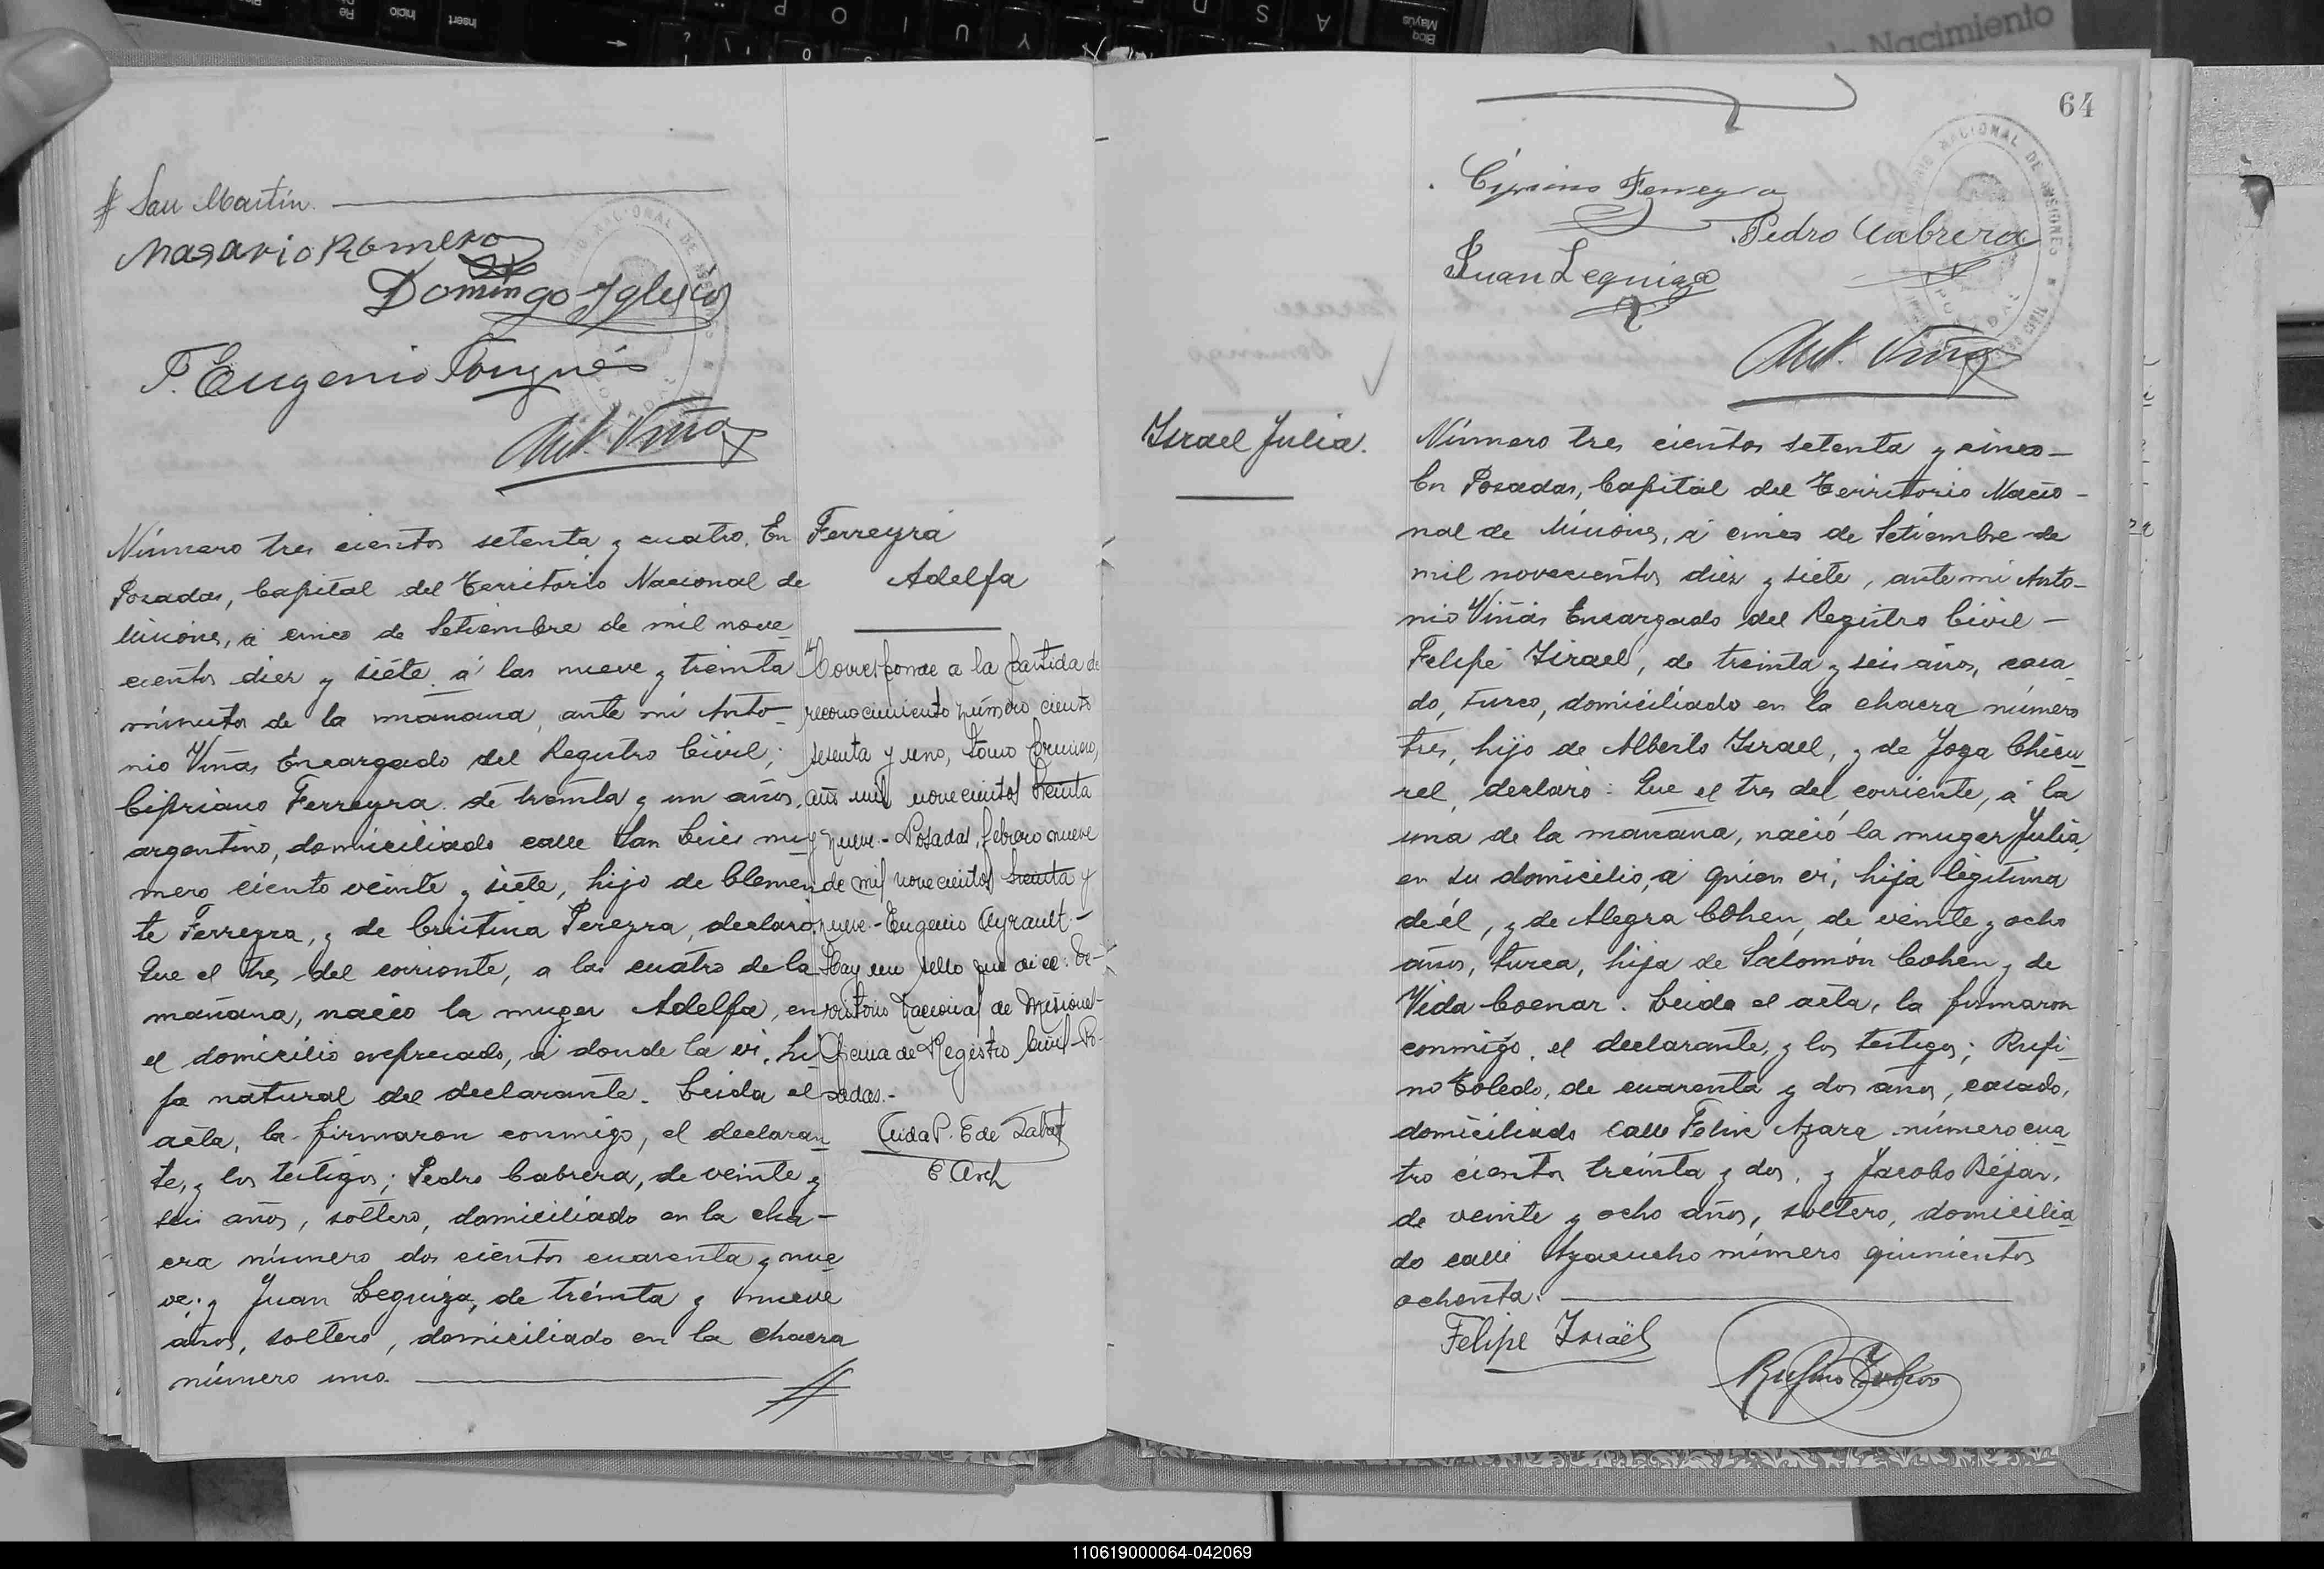 # San Martín.
Nasario Romero
Domingo Yglesias
P. Eugenio
Ant. Viñas
Número tres cientos setenta y cuatro. En
Posadas, Capital del Territorio Nacional de
Misiones, á cinco de Setiembre de mil nove_
cientos diez y siete á las nueve y treinta
minutos de la mañana, ante mi Anto_
nio Viñas Encargado del Registro Civil;
Cipriano Ferreyra de treinta y un años,
argentino, domiciliado calle San Luis nu_
mero ciento veinte y siete, hijo de Clemen
te Ferreyra, y de Cristina Pereyra, declaró:
Que el tres del corriente, a las cuatro de la
mañana, nació la muger Adelfa, en
el domicilio expresado, á donde la vi, hi_
ja natural del declarante. Leida el
acta, la firmaron conmigo, el declaran_
te, y los testigos; Pedro Cabrera, de veinte y
seis años, soltero, domiciliado en la cha-
cra número dos cientos cuarenta y nue_
ve; y Juan Leguiza, de treinta y nueve
años, soltero, domiciliado en la chacra
número uno.
#
Ferreyra
Adelfa
Corresponde a la partida de
reconocimiento número ciento
sesenta y uno, tomo primero,
año mil novecientos treinta
y nueve.- Posadas, febrero nueve
de mil novecientos treinta y
nueve.- Eugenio Ayrault.-
Hay un sello que dice: Te-
rritorio Nacional de Misiones-
Oficina de Registro Civil-Po-
sadas.-
P. E de
E Arch
64
TERRITORIO NACIONAL DE MISIONES
Cipriano Ferreyra
Pedro Cabrera
Juan Leguiza
Ant. Viñas
Israel Julia.
Número tres cientos setenta y cinco_
En Posadas, Capital del Territorio Nacio-
nal de Misiones, á cinco de Setiembre de
mil novecientos diez y siete, ante mi Anto_
nio Viñas Encargado del Registro Civil-
Felipe Israel, de treinta y seis años, casa_
do, turco, domiciliado en la chacra número
tres, hijo de Alberto Israel, y de Joya Chicu_
rel, declaró: Que el tres del corriente, á la
una de la mañana, nació la muger Julia,
en su domicilio, á quien vi, hija legitima
de él, y de Alegra Cohen, de veinte y ocho
años, turca, hija de Salomón Cohen y de
Vida Coenar. Leida el acta, la firmaron
conmigo, el declarante, y los testigos; Rufi_
no Toledo, de cuarenta y dos años, casado,
domiciliado calle Felix Azara número cua_
tro cientos treinta y dos, y Jacobo Bejar,
de veinte y ocho años, soltero, domicilia_
do calle Ayacucho número quinientos
ochenta.
Felipe Israël
Rufino Toledo
110619000064-042069